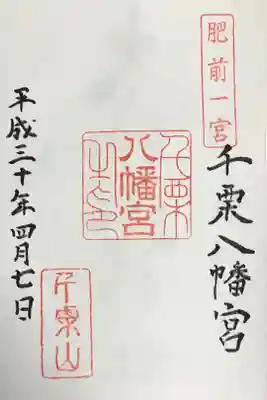 肥前一宮
千栗八幡宮
千栗
八幡宮
之印
平成三十年四月七日
千栗山